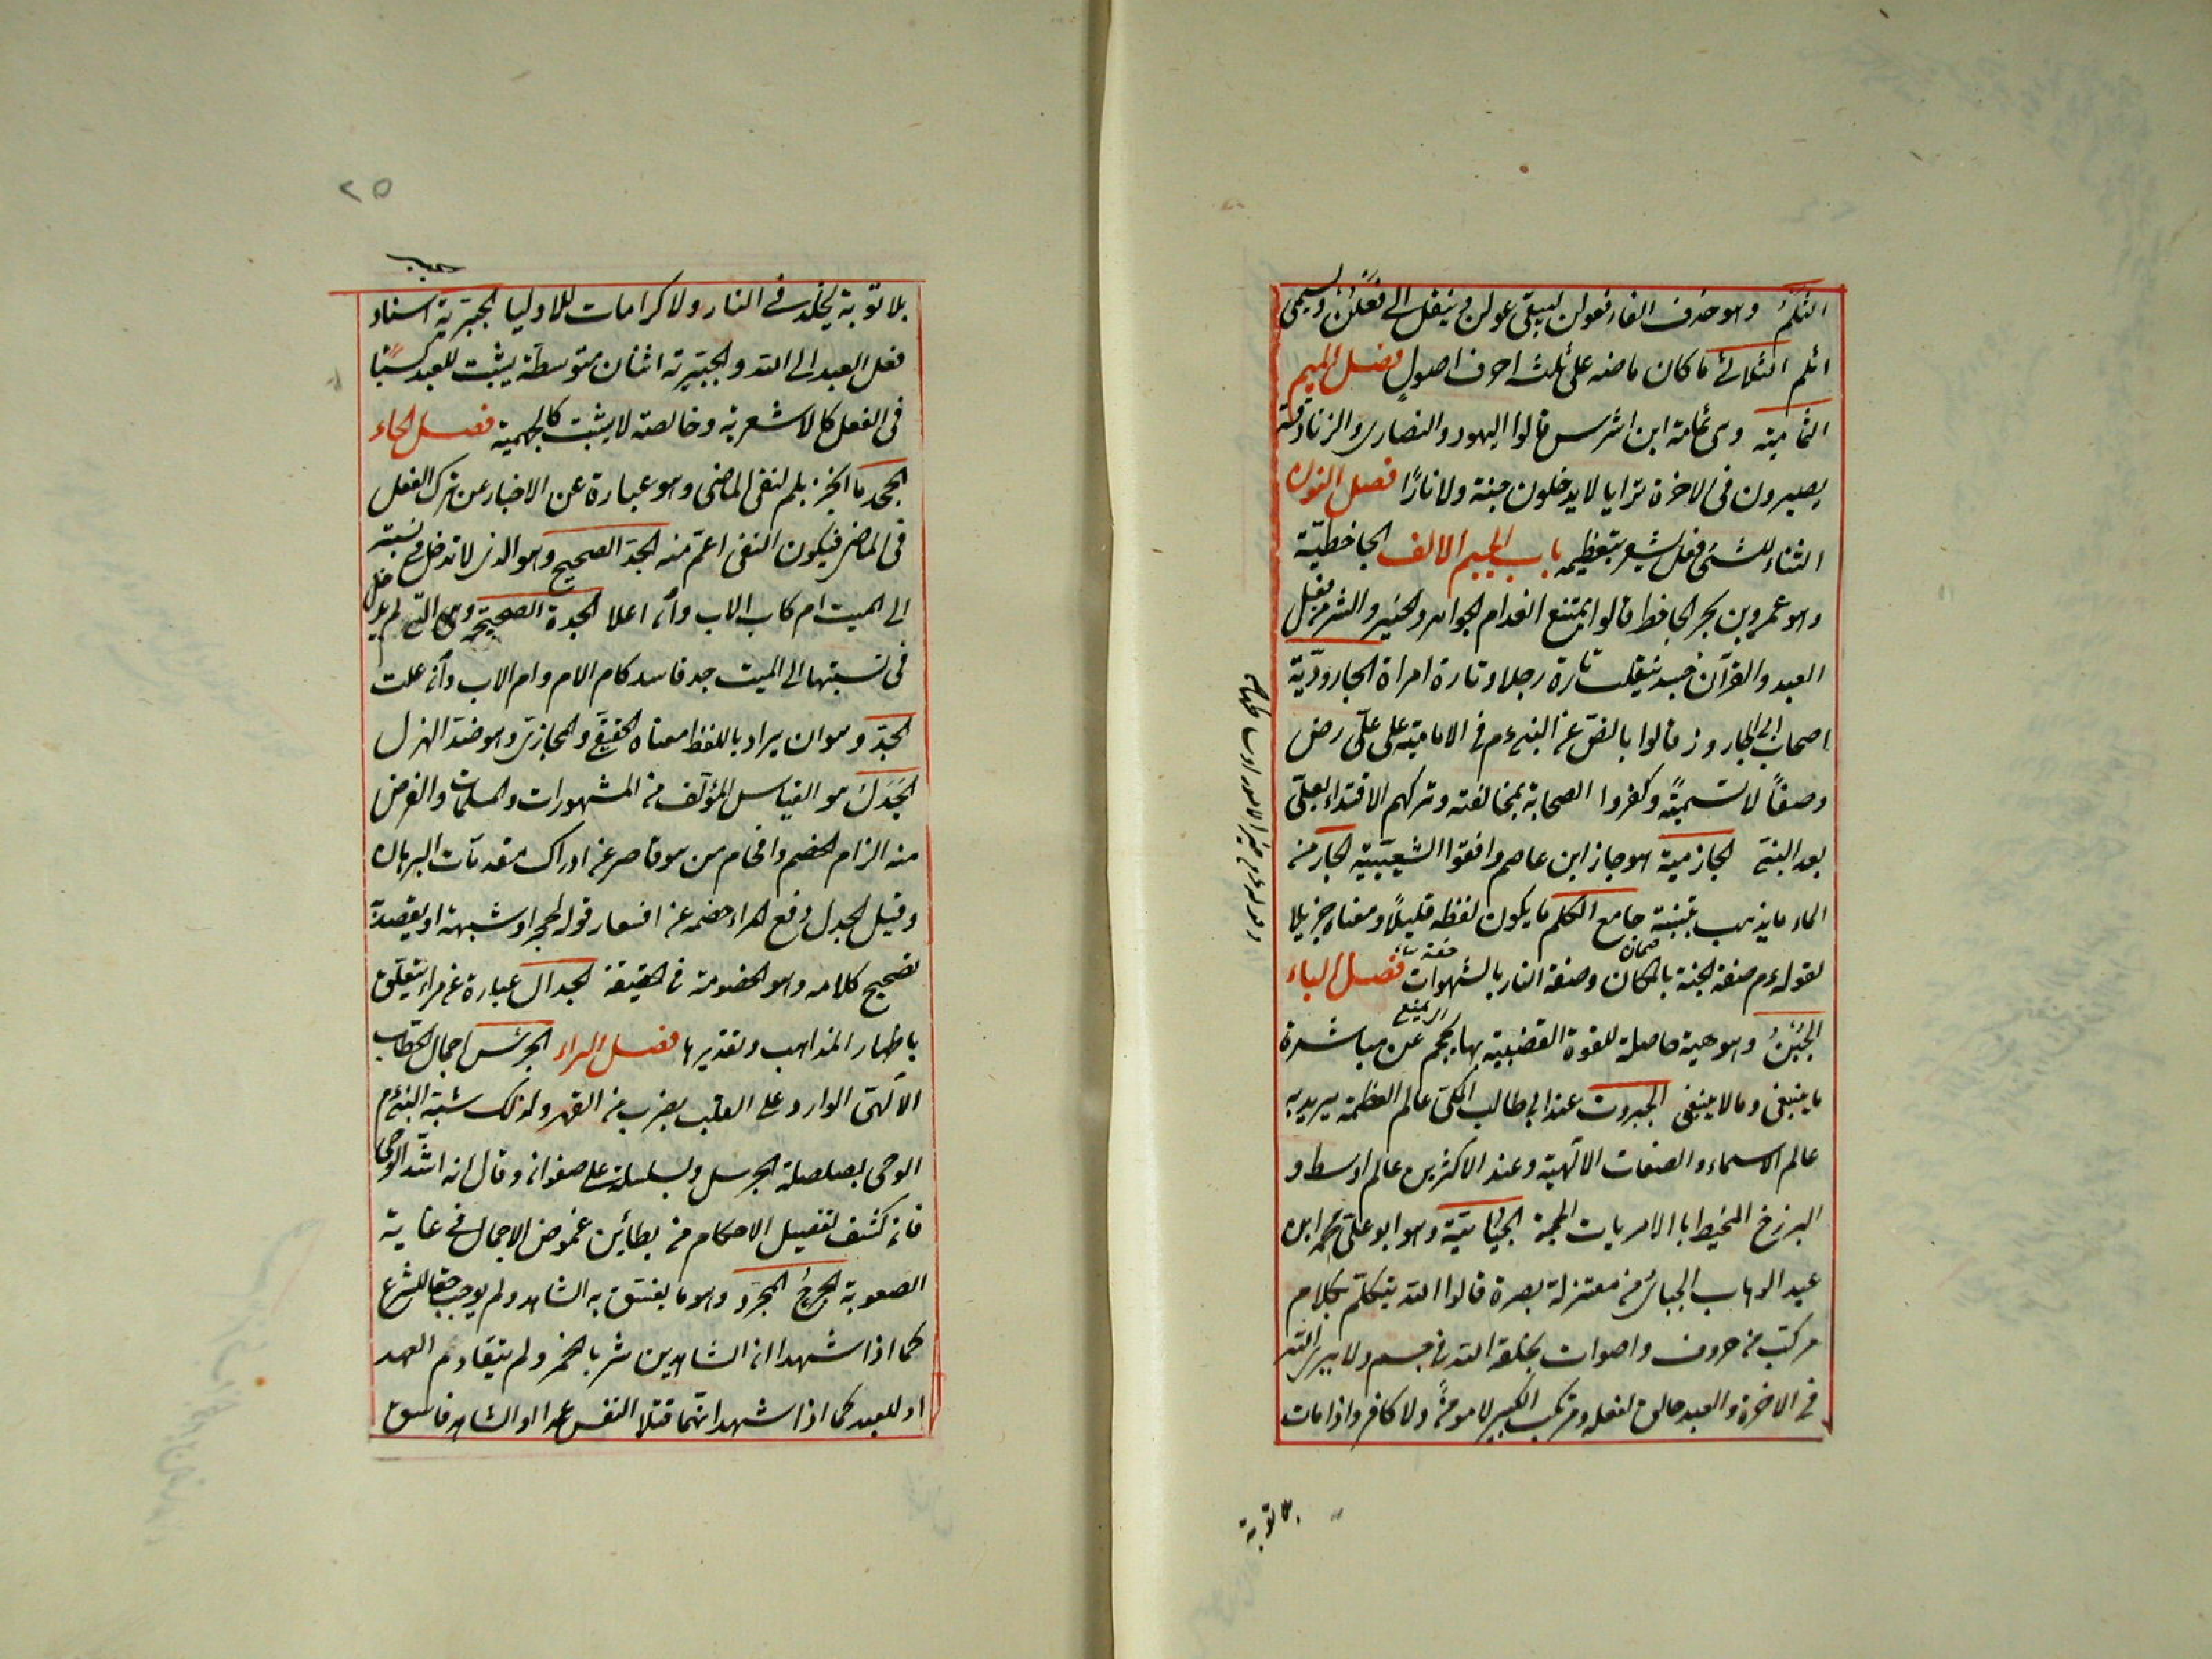 الثلم وهو حذف الفاء فعولن ليبقى عولن وينقل الى فعلن ويسمى
اثلم الثلاثي ما كان ماضيه على ثلث احرف اصول فصل الميم
الثمامية وهى ثمامة ابن اشرس قالوا اليهود والنصارى والزنادقة
يصيرون فى الاخرة ترابا لا يدخلون جنة ولا نارًا فصل النون
الثناء للشئ فعل يشعر بتعظيمه باب الجيم الالف الجاحظيّة
وهو عمرو بن بحر الجاحظ قالوا يمتنع انعدام الجواهر والخير والشر من فعل
العبد والقرآن جسد ينقلب تارة رجلا وتارة امراة الجاروديّة
اصحاب ابى الجارود قالوا بالنص عن النبى ءم فى الامامية على علىّ رض
وصفًا لا تسميةً وكفروا الصحابة بمخالفته وتركهم الاقتداء بعلىّ
بعد النبى الجازمية هو جاز ابن عاصم وافقوا الشعيبية الجار من
الماء ما يذهب بتبنة جامع الكلم ما يكون لفظه قليلًا ومعناه جزيلا
لقوله ءم صفة الجنة بالمكان وصفة النار بالشهوات فصل الباء
الجُبْنُ وهو هيئة حاصلة للقوة الغضبية بها يحجم عن مباشرة
ما ينبغى وما لا ينبغى الجبروت عند ابى طالب المكى عالم العظمة يريد به
عالم الاسماء والصفات الآلهية وعند الاكثرين عالم اوسط و
البرزخ المحيط بالامريات الجمة الجبّائيّة وهو ابو علىّ محمد ابن
عبد الوهاب الجبائى من معتزلة بصرة قالوا الله يتكلم بكلام
مركب من حروف واصوات يخلقه الله فى جسم ولا يرى الله
فى الاخرة والعبد خالق لفعله ومرتكب الكبير لا مؤمن ولا كافر واذا مات
بلا توبة
بلا توبة يخلد فى النار ولا كرامات للاوليا الجبرية اسناد
فعل العبد الى الله والجبرية اثنان متوسطة يثبت للعبد كسبًا
فى الفعل كالاشعرية وخالصة لا يثبت كالجهمية فصل الحاء
الجحد ما انجزم بلم لنفى الماضى وهو عبارة عن الاخبار عن ترك الفعل
فى الماضى فيكون النفى اعمّ منه الجدّ الصحيح وهو الذى لا تدخل فى نسبته
الى الميت ام كاب الاب وان اعلا الجدة الصحيحة وهى التى لم يدخل
فى نسبتها الى الميت جد فاسد كام الام وام الاب وان علت
الجدّ وهو ان يراد باللفظ معناه الحقيقى والمجازى وهو ضد الهزل
الجَدَل هو القياس المؤلف من المشهورات والمسلمات والغرض
منه الزام الخصم وافحام من هو قاصر عن ادراك مقدمات البرهان
وقيل الجدل دفع المراء خصمه عن افساد قوله بحجة او شبهة او يقصد به
تصحيح كلامه وهو الخصومة فى الحقيقة الجدال عبارة عن مراء يتعلق
باظهار المذاهب وتقريرها فصل الراء الجرس اجمال الخطاب
الآلهى الوارد على القلب بضرب من القهر ولذلك شبّه النبى ءم
الوحى بصلصلة الجرس وبسلسلة على صفوان وقال انه اشد الوحى
فان كشف تفصيل الاحكام من بطائن غموض الاجمال فى غاية
الصعوبة الجرحُ المجرّد وهو ما يفسق به الشاهد ولم يوجب حقا للشرع
كما اذا شهدا ان الشاهدين شربا الخمر ولم يتقادم العهد
او للعبد كما اذا شهدا انهما قتلا النفس عمدا او الشاهد فاسق
٢٥